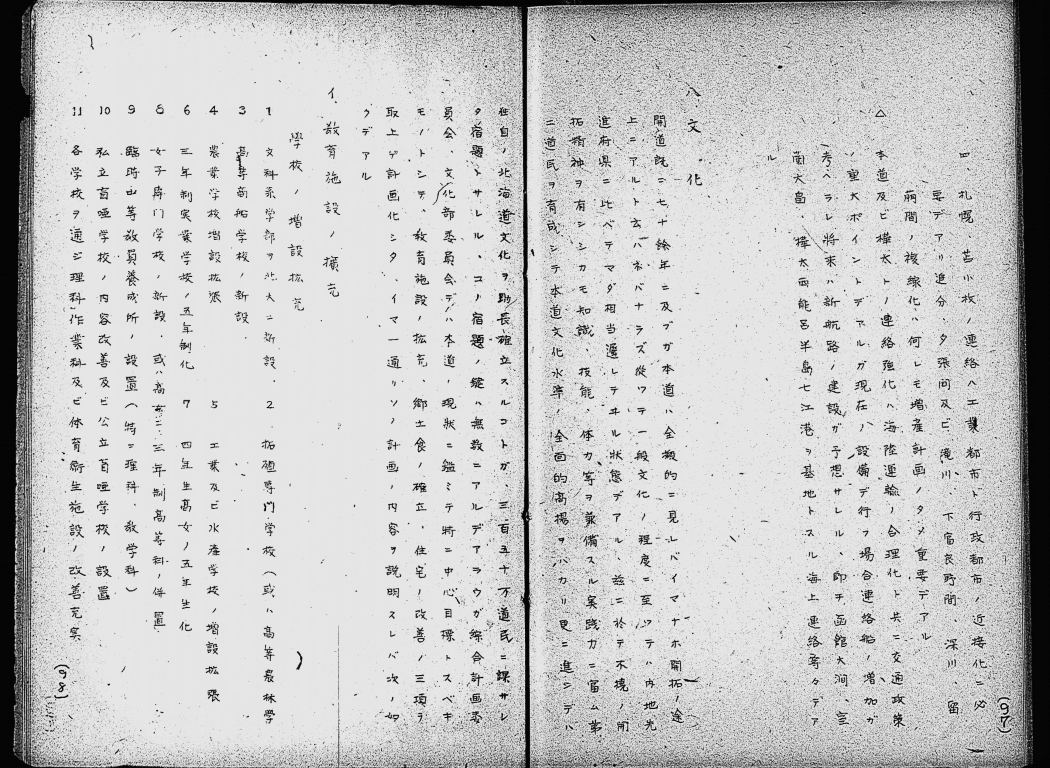 四、札幌、苫小牧ノ連絡ハ工業都市ト行政都市ノ近接化ニ必
要デアリ追分、夕張間及ビ滝川、下富良野間、深川、留
萌間ノ複線化ハ何レモ増産計画ノタメ重要デアル
△ 本道及ビ樺太トノ連絡強化ハ海陸運輸ノ合理化ト共ニ交通政策
ノ重大ポイントデアルガ現在ノ設備デ行フ場合連絡船ノ増加ガ
考ヘラレ将来ハ新航路ノ建設ガ予想サレル、即チ函館大澗、室
蘭大畠、樺太西能呂半島七江港ヲ基地トスル海上連絡等々デア
ル
(97)
八、文化
開道既ニ七十餘年ニ及ブガ本道ハ全般的ニ見レバイマナホ開拓ノ途
上ニアルト云ハネバナラズ従ツテ一般文化ノ程度ニ至ツテハ内地先
進府県ニ比ベテマダ相当遜レテヰル状態デアル、茲ニ於テ不撓ノ開
拓精神ヲ有シシカモ知識、技能、体力等ヲ兼備スル実践力ニ富ム第
二道民ヲ育成シテ本道文化水準ノ全面的高揚ヲハカリ更ニ進ンデハ
独自ノ北海道文化ヲ助長確立スルコトガ、三百五十万道民ニ課サレ
タ宿題トサレル、コノ宿題ノ鍵ハ無数ニアルデアラウガ綜合計画委
員会、文化部委員会デハ本道ノ現状ニ鑑ミテ特ニ中心目標トスベキ
モノトシテ、教育施設ノ拡充、郷土食ノ確立、住宅ノ改善ノ三項ヲ
取上ゲ計画化シタ、イマ一通リソノ計画ノ内容ヲ説明スレバ次ノ如
クデアル
イ、教育施設ノ擴充
學校ノ増設拡充
1 文科系学部ヲ北大ニ新設、 2 拓殖専門学校(或ハ高等農林學
3 高等商船学校ノ新設、
4 農業学校増設拡張 5 工業及ビ水産学校ノ増設拡張
6 三年制実業学校ノ五年制化 7 四年生高女ノ五年生化
8 女子専門学校ノ新設、或ハ高女ニ三年制高等科ノ併置
9 臨時中等教員養成所ノ設置(特ニ理科、数学科)
10 私立盲唖学校ノ内容改善及ビ公立盲唖学校ノ設置
11 各学校ヲ通ジ理科作業科及ビ体育衛生施設ノ改善充実
(98)